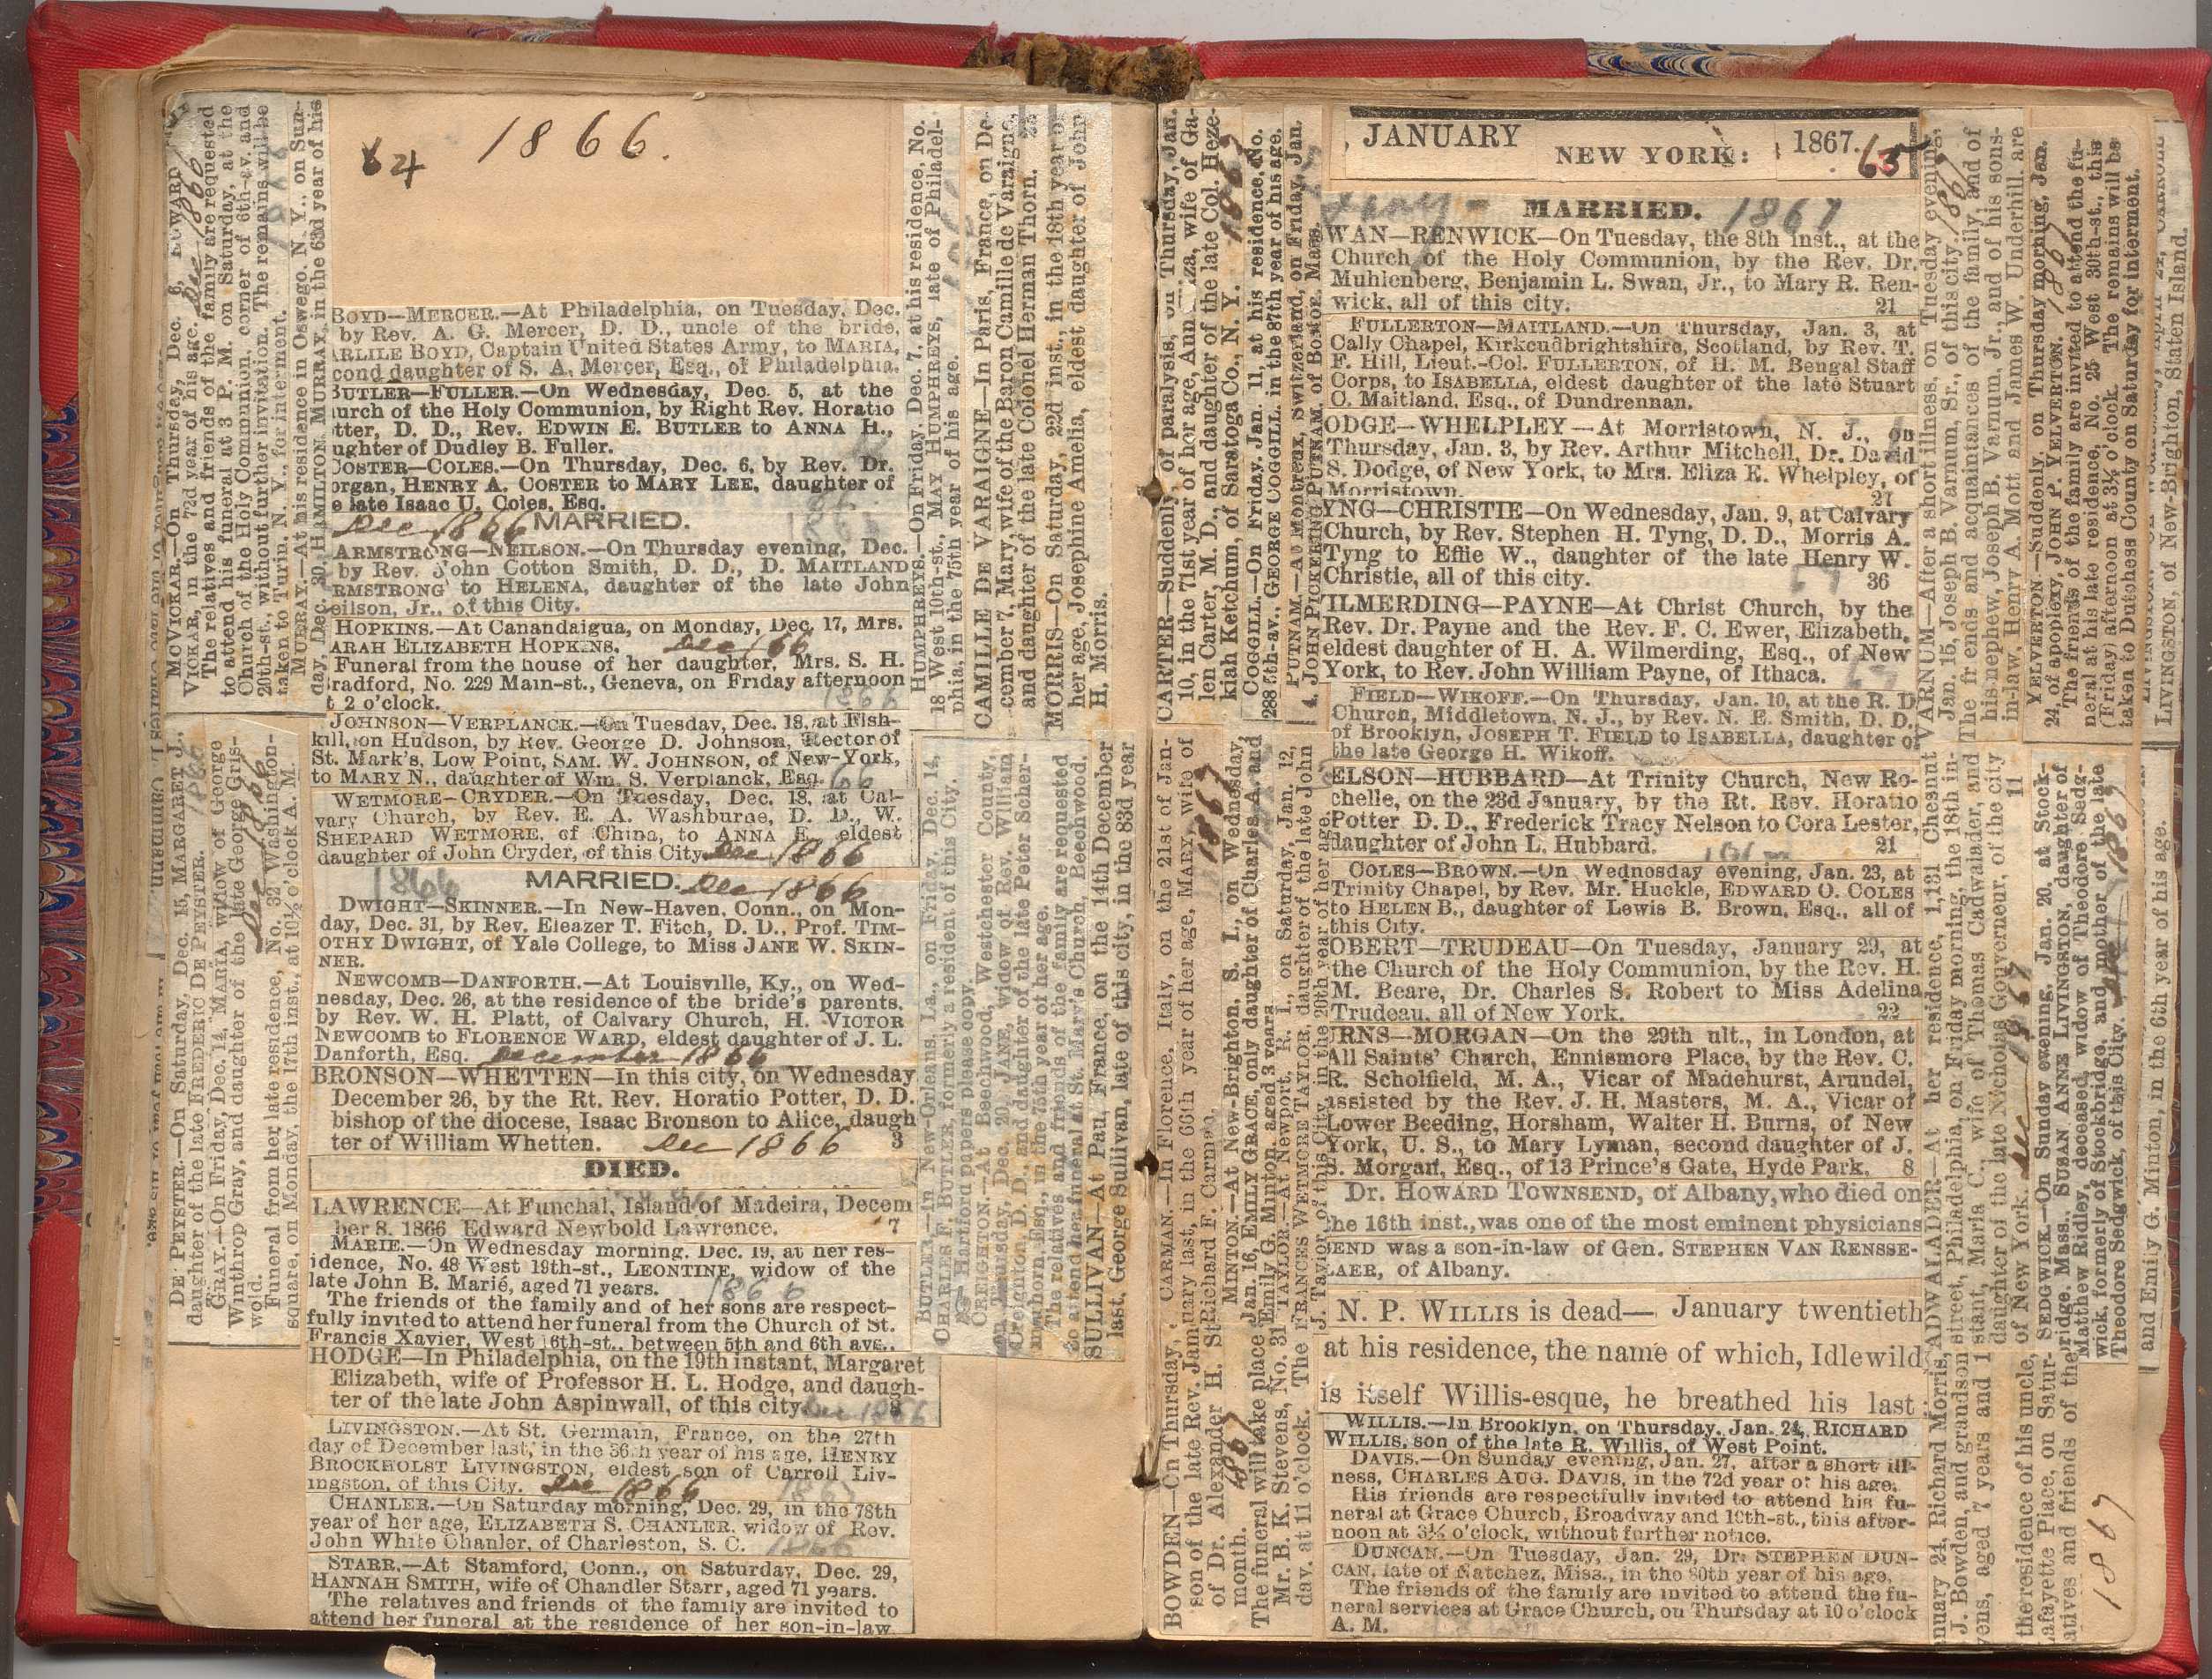 64
1866.
BOYD—MERCER.—At Philadelphia, on Tuesday, Dec.
by Rev. A. G. Mercer, D. D., uncle of the bride,
ARLILE BOYD, Captain United States Army, to MARIA,
cond daughter of S. A. Mercer, Esq., of Philadelphia.
BUTLER—FULLER.—On Wednesday, Dec. 5, at the
urch of the Holy Communion, by Right Rev. Horatio
tter, D. D., Rev. EDWIN E. BUTLER to ANNA H.,
ughter of Dudley B. Fuller.
COSTER—COLES.—On Thursday, Dec. 6, by Rev. Dr.
organ, HENRY A. COSTER to MARY LEE, daughter of
e late Isaac U. Coles, Esq.
Dec 1866 MARRIED.
ARMSTRONG—NEILSON.—On Thursday evening, Dec.
by Rev. John Cotton Smith, D. D., D. MAITLAND
RMSTRONG to HELENA, daughter of the late John
eilson, Jr., of this City.
HOPKINS.—At Canandaigua, on Monday, Dec. 17, Mrs.
ARAH ELIZABETH HOPKINS. Dec/66
Funeral from the house of her daughter, Mrs. S. H.
radford, No. 229 Main-st., Geneva, on Friday afternoon
t 2 o'clock. 1866
JOHNSON—VERPLANCK.—On Tuesday, Dec. 18, at Fish-
kill, on Hudson, by Rev. George D. Johnson, Rector of
St. Mark's, Low Point, SAM. W. JOHNSON, of New-York,
to MARY N., daughter of Wm. S. Verplanck, Esq. 66
WETMORE—CRYDER.—On Tuesday, Dec. 18, at Cal-
vary Church, by Rev. E. A. Washburne, D. D., W.
SHEPARD WETMORE, of China, to ANNA E., eldest
daughter of John Cryder, of this City. Dec 1866
1866 MARRIED. Dec 1866
DWIGHT—SKINNER.—In New-Haven, Conn., on Mon-
day, Dec. 31, by Rev. Eleazer T. Fitch, D. D., Prof. TIM-
OTHY DWIGHT, of Yale College, to Miss JANE W. SKIN-
NER.
NEWCOMB—DANFORTH.—At Louisville, Ky., on Wed-
nesday, Dec. 26, at the residence of the bride's parents,
by Rev. W. H. Platt, of Calvary Church, H. VICTOR
NEWCOMB to FLORENCE WARD, eldest daughter of J. L.
Danforth, Esq. December 1866
BRONSON—WHETTEN—In this city, on Wednesday
December 26, by the Rt. Rev. Horatio Potter, D. D.
bishop of the diocese, Isaac Bronson to Alice, daugh
ter of William Whetten. Dec 1866 3
DIED.
LAWRENCE—At Funchal, Island of Madeira, Decem
ber 8, 1866 Edward Newbold Lawrence. 7
MARIE.—On Wednesday morning, Dec. 19, at her res-
idence, No. 48 West 19th-st., LEONTINE, widow of the
late John B. Marié, aged 71 years. 1866
The friends of the family and of her sons are respect-
fully invited to attend her funeral from the Church of St.
Francis Xavier, West 16th-st., between 5th and 6th avs.,
HODGE—In Philadelphia, on the 19th instant, Margaret
Elizabeth, wife of Professor H. L. Hodge, and daugh-
ter of the late John Aspinwall, of this city. Dec 1866
LIVINGSTON.—At St. Germain, France, on the 27th
day of December last, in the 36th year of his age, HENRY
BROCKHOLST LIVINGSTON, eldest son of Carroll Liv-
ingston, of this City. Dec 1866
CHANLER.—On Saturday morning, Dec. 29, in the 78th
year of her age, ELIZABETH S. CHANLER, widow of Rev.
John White Chanler, of Charleston, S. C. 1866
STARR.—At Stamford, Conn., on Saturday, Dec. 29,
HANNAH SMITH, wife of Chandler Starr, aged 71 years.
The relatives and friends of the family are invited to
attend her funeral at the residence of her son-in-law
McVICKAR.—On Thursday, Dec. 6, EDWARD
VICKAR, in the 72d year of his age. Dec 1866
The relatives and friends of the family are requested
to attend his funeral at 3 P. M. on Saturday, at the
Church of the Holy Communion, corner of 6th-av. and
20th-st., without further invitation. The remains will be
taken to Turin, N. Y., for interment.
MURRAY.—At his residence in Oswego, N. Y., on Sun-
day, Dec. 30, HAMILTON MURRAY, in the 63d year of his
DE PEYSTER.—On Saturday, Dec. 15, MARGARET J.,
daughter of the late FREDERIC DE PEYSTER. 1866
GRAY.—On Friday, Dec. 14, MARIA, widow of George
Winthrop Gray, and daughter of the late George Gris-
wold. Dec 1866
Funeral from her late residence, No. 32 Washington-
square, on Monday, the 17th inst., at 10½ o'clock A. M.
HUMPHREYS.—On Friday, Dec. 7, at his residence, No.
18 West 10th-st., MAY HUMPHREYS, late of Philadel-
phia, in the 75th year of his age.
CAMILLE DE VARAIGNE—In Paris, France, on De-
cember 7, Mary, wife of the Baron Camille de Varaigne,
and daughter of the late Colonel Herman Thorn.
MORRIS—On Saturday, 22d inst., in the 18th year of
her age, Josephine Amelia, eldest daughter of John
H. Morris.
BUTLER.—in New-Orleans, La., on Friday, Dec. 14,
CHARLES F. BUTLER, formerly a resident of this City.
Hartford papers please copy.
CREIGHTON.—At Beechwood, Westchester County,
on Thursday, Dec. 20, JANE, widow of Rev. William
Creighton, D. D., and daughter of the late Peter Scher-
merhorn, Esq., in the 75th year of her age.
The relatives and friends of the family are requested
to attend her funeral at St. Mary's Church, Beechwood,
SULLIVAN—At Pau, France, on the 14th December
last, George Sullivan, late of this city, in the 83d year
JANUARY 1867. 65
NEW YORK:
MARRIED. 1867
WAN—RENWICK—On Tuesday, the 8th inst., at the
Church of the Holy Communion, by the Rev. Dr.
Muhlenberg, Benjamin L. Swan, Jr., to Mary R. Ren-
wick, all of this city. 21
FULLERTON—MAITLAND.—On Thursday, Jan. 3, at
Cally Chapel, Kirkcudbrightshire, Scotland, by Rev. T.
F. Hill, Lieut.-Col. FULLERTON, of H. M. Bengal Staff
Corps, to ISABELLA, eldest daughter of the late Stuart
C. Maitland, Esq., of Dundrennan.
ODGE—WHELPLEY—At Morristown, N. J., on
Thursday, Jan. 3, by Rev. Arthur Mitchell, Dr. David
S. Dodge, of New York, to Mrs. Eliza E. Whelpley, of
Morristown. 21
YNG—CHRISTIE—On Wednesday, Jan. 9, at Calvary
Church, by Rev. Stephen H. Tyng, D. D., Morris A.
Tyng to Effie W., daughter of the late Henry W.
Christie, all of this city. 36
ILMERDING—PAYNE—At Christ Church, by the
Rev. Dr. Payne and the Rev. F. C. Ewer, Elizabeth,
eldest daughter of H. A. Wilmerding, Esq., of New
York, to Rev. John William Payne, of Ithaca.
FIELD—WIKOFF.—On Thursday, Jan. 10, at the R. D
Church, Middletown, N. J., by Rev. N. E. Smith, D. D.,
of Brooklyn, JOSEPH T. FIELD to ISABELLA, daughter of
the late George H. Wikoff.
ELSON—HUBBARD—At Trinity Church, New Ro-
chelle, on the 23d January, by the Rt. Rev. Horatio
Potter D. D., Frederick Tracy Nelson to Cora Lester,
daughter of John L. Hubbard. 21
COLES—BROWN.—On Wednesday evening, Jan. 23, at
Trinity Chapel, by Rev. Mr. Huckle, EDWARD O. COLES
to HELEN B., daughter of Lewis B. Brown, Esq., all of
this City.
OBERT—TRUDEAU—On Tuesday, January 29, at
the Church of the Holy Communion, by the Rev. H.
M. Beare, Dr. Charles S. Robert to Miss Adelina
Trudeau, all of New York. 22
URNS—MORGAN—On the 29th ult., in London, at
All Saints' Church, Ennismore Place, by the Rev. C.
R. Scholfield, M. A., Vicar of Madehurst, Arundel,
assisted by the Rev. J. H. Masters, M. A., Vicar of
Lower Beeding, Horsham, Walter H. Burns, of New
York, U. S., to Mary Lyman, second daughter of J.
S. Morgan, Esq., of 13 Prince's Gate, Hyde Park. 8
Dr. HOWARD TOWNSEND, of Albany, who died on
the 16th inst., was one of the most eminent physicians
SEND was a son-in-law of Gen. STEPHEN VAN RENSSE-
LAER, of Albany.
N. P. WILLIS is dead— January twentieth
at his residence, the name of which, Idlewild
is itself Willis-esque, he breathed his last
WILLIS.—In Brooklyn, on Thursday, Jan. 24, RICHARD
WILLIS, son of the late R. Willis, of West Point.
DAVIS.—On Sunday evening, Jan. 27, after a short ill-
ness, CHARLES AUG. DAVIS, in the 72d year of his age.
His friends are respectfully invited to attend his fu-
neral at Grace Church, Broadway and 10th-st., this after-
noon at 3½ o'clock, without further notice.
DUNCAN.—On Tuesday, Jan. 29, Dr. STEPHEN DUN-
CAN, late of Natchez, Miss., in the 80th year of his age.
The friends of the family are invited to attend the fu-
neral services at Grace Church, on Thursday at 10 o'clock
A. M.
CARTER—Suddenly, of paralysis, on Thursday, Jan.
10, in the 71st year of her age, Ann Eliza, wife of Ga-
len Carter, M. D., and daughter of the late Col. Heze-
kiah Ketchum, of Saratoga Co., N. Y. 1867
COGGILL.—On Friday, Jan. 11, at his residence, No.
288 5th-av., GEORGE COGGILL, in the 87th year of his age.
PUTNAM.—At Montreux, Switzerland, on Friday, Jan.
4, JOHN PICKERING PUTNAM, of Boston, Mass.
BOWDEN—On Thursday,
son of the late Rev. Ja
of Dr. Alexander H. St
month. 1867
CARMAN.—In Florence, Italy, on the 21st of Jan-
uary last, in the 66th year of her age, MARY, wife of
Richard F. Carman. 1867
MINTON.—At New-Brighton, S. I., on Wednesday,
Jan. 16, EMILY GRACE, only daughter of Charles A. and
Emily G. Minton, aged 3 years
The funeral will take place
Mr. B. K. Stevens, No. 31
day, at 11 o'clock. The
TAYLOR.—At Newport, R. I., on Saturday, Jan. 12,
FRANCES WETMORE TAYLOR, daughter of the late John
J. Taylor, of this City, in the 20th year of her age.
VARNUM—After a short illness, on Tuesday evening,
Jan. 15, Joseph B. Varnum, Sr., of this city. 1867
The friends and acquaintances of the family, and of
his nephew, Joseph B. Varnum, Jr., and of his sons-
in-law, Henry A. Mott and James W. Underhill, are
YELVERTON—Suddenly, on Thursday morning, Jan.
24, of apoplexy, JOHN P. YELVERTON. 1867
The friends of the family are invited to attend the fu-
neral at his late residence, No. 25 West 30th-st., this
(Friday) afternoon at 3½ o'clock. The remains will be
taken to Dutchess County on Saturday for interment.
LIVINGSTON, of New-Brighton, Staten Island.
ADWALADER—At her residence, 1,131 Chesnut
street, Philadelphia, on Friday morning, the 18th in-
stant, Maria C., wife of Thomas Cadwalader, and
daughter of the late Nicholas Gouverneur, of the city
of New York. 11
SEDGWICK.—On Sunday evening, Jan. 20, at Stock-
bridge, Mass., SUSAN ANNE LIVINGSTON, daughter of
Matthew Ridley, deceased, widow of Theodore Sedg-
wick, formerly of Stockbridge, and mother of the late
Theodore Sedgwick, of this City.
and Emily G. Minton, in the 6th year of his age.
nuary 24, Richard Morris,
J. Bowden, and grandson
vens, aged 7 years and 1
the residence of his uncle,
Lafayette Place, on Satur-
atives and friends of the
1867